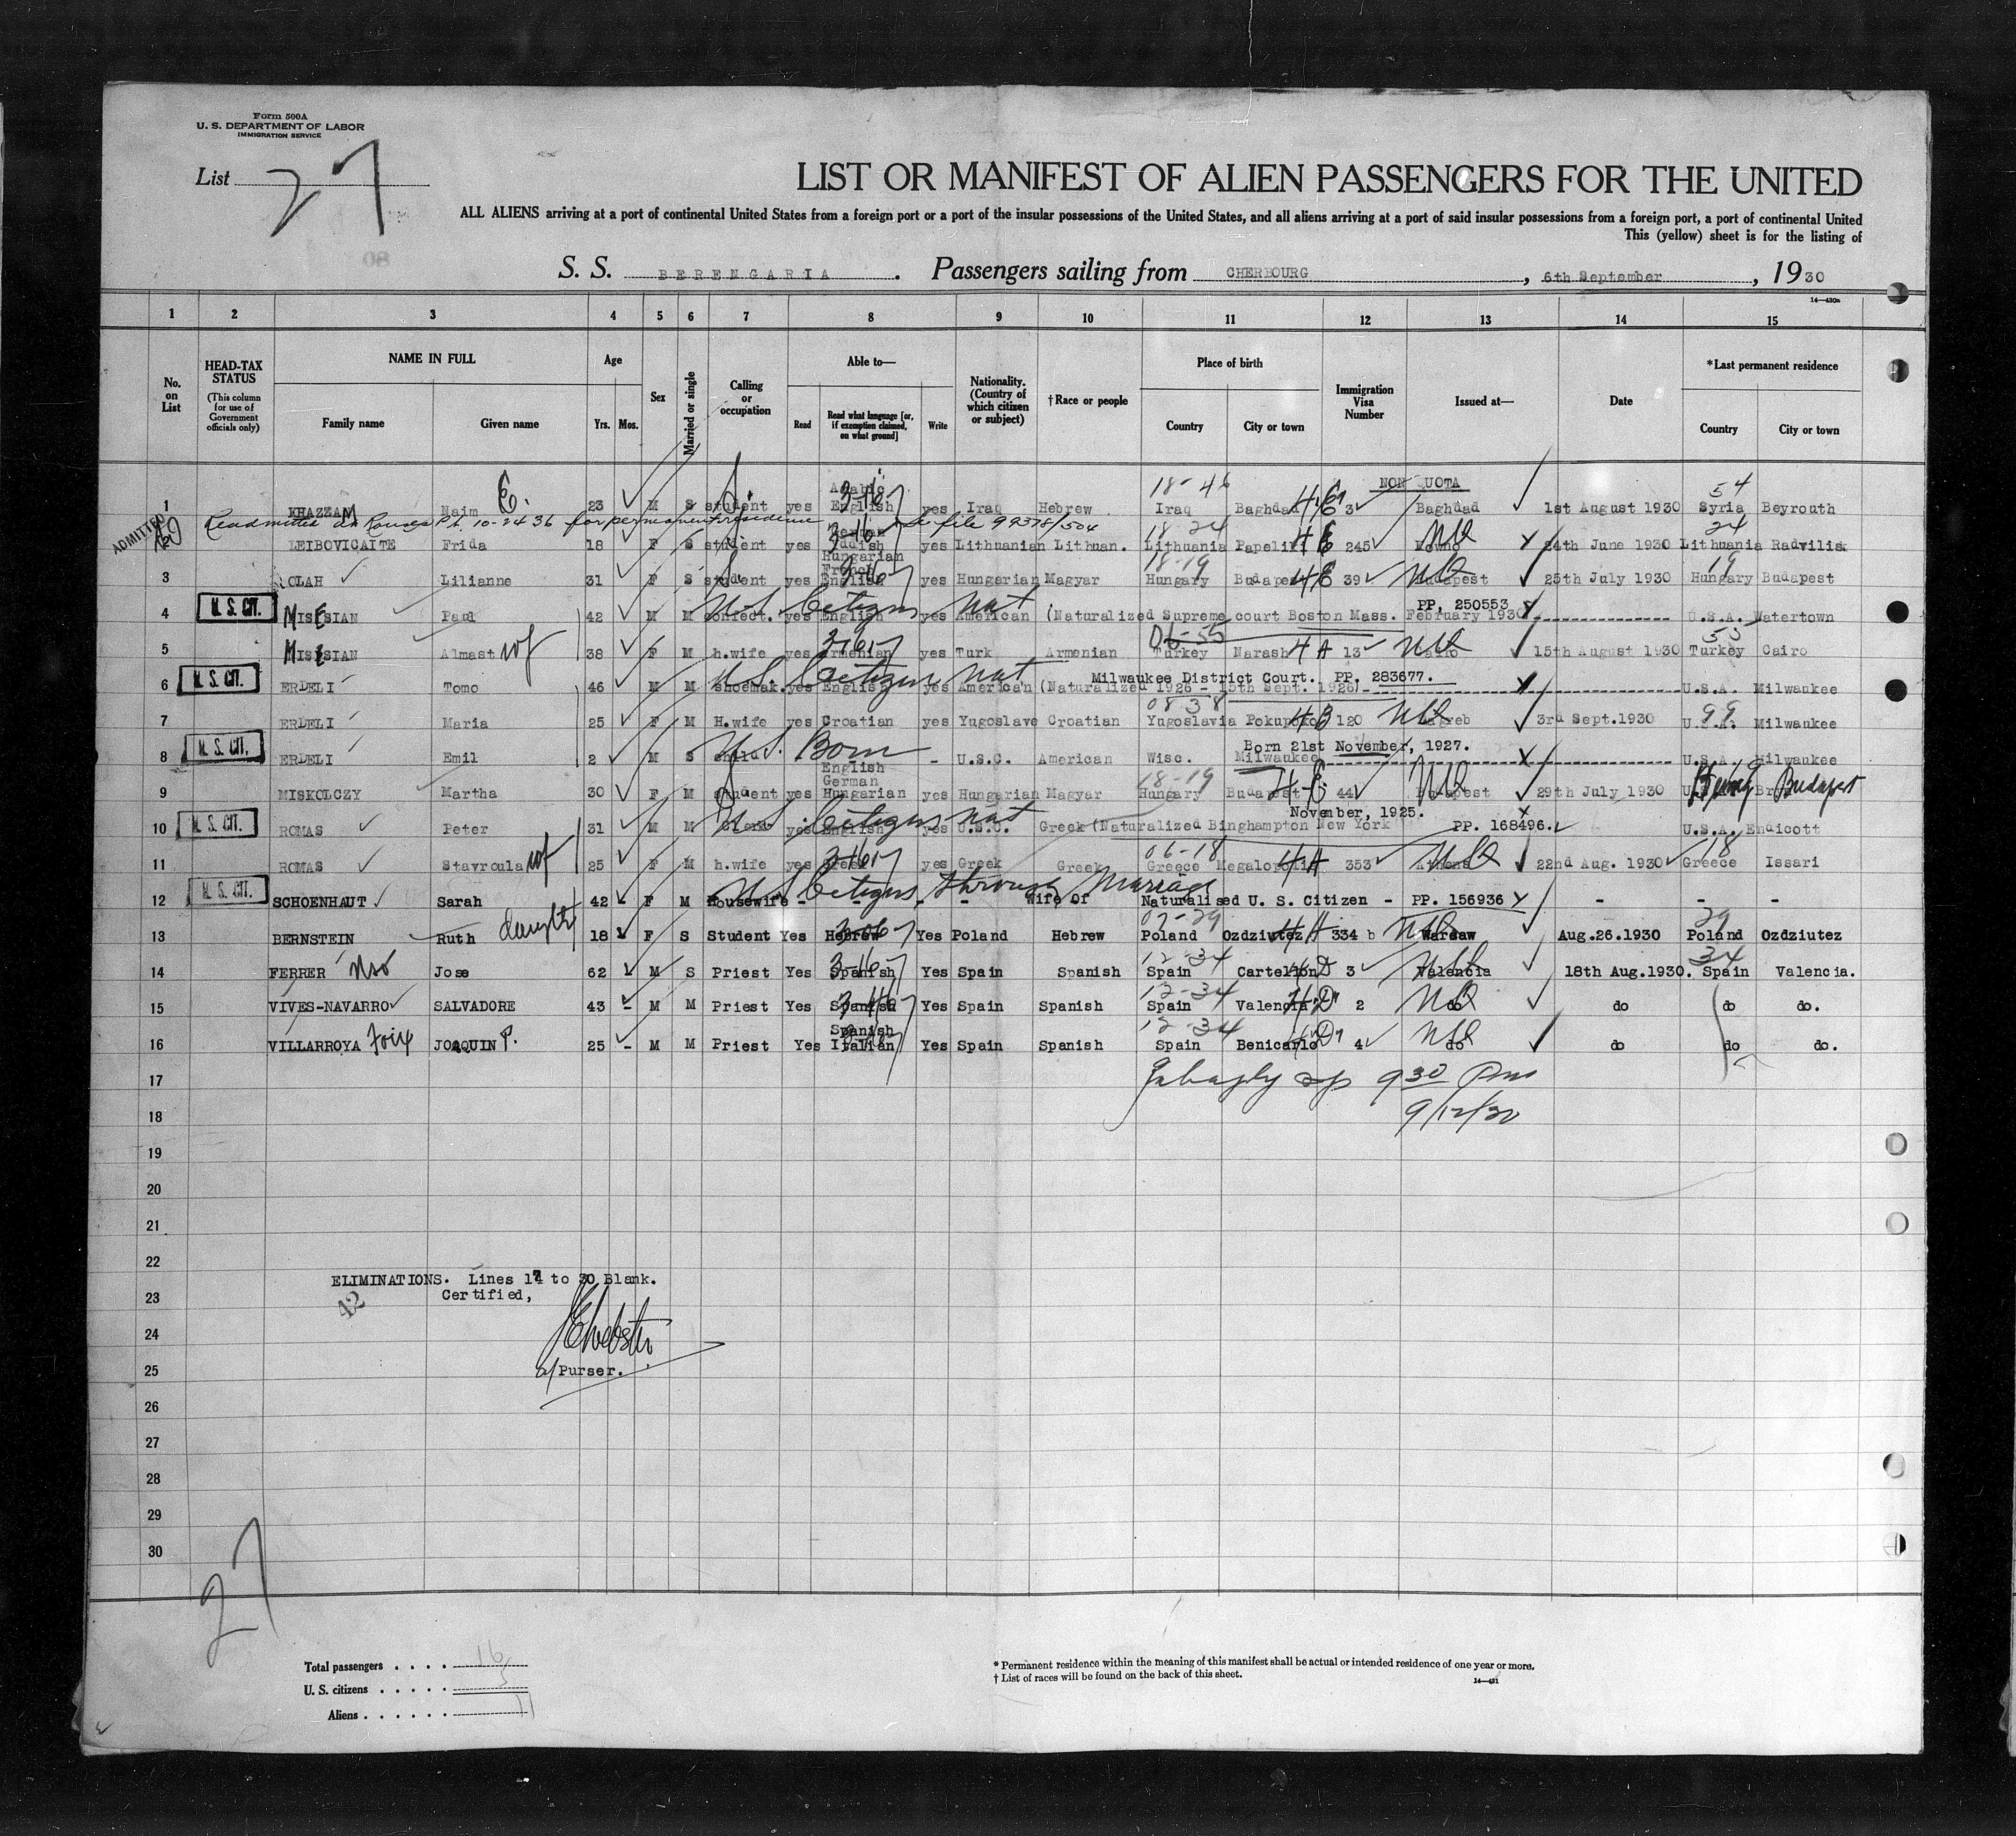 Form 500A
U. S. DEPARTMENT OF LABOR
IMMIGRATION SERVICE
List 27
LIST OR MANIFEST OF ALIEN PASSENGERS FOR THE UNITED
ALL ALIENS arriving at a port of continental United States from a foreign port or a port of the insular possessions of the United States, and all aliens arriving at a port of said insular possessions from a foreign port, a port of continental United
This (yellow) sheet is for the listing of
S. S. BERENGARIA. Passengers sailing from CHERBOURG, 6th September, 1930
14—430a
1 2 3 4 5 6 7 8 9 10 11 12 13 14 15
No. on List
HEAD-TAX STATUS (This column for use of Government officials only)
NAME IN FULL Family name Given name
Age Yrs. Mos.
Sex
Married or single
Calling or occupation
Able to— Read Read what language [or, if exemption claimed, on what ground] Write
Nationality. (Country of which citizen or subject)
†Race or people
Place of birth Country City or town
Immigration Visa Number
Issued at—
Date
*Last permanent residence Country City or town
18-46 NON QUOTA 54
1 KHAZZAM Naim E. 23 M S student yes Arabic English 3-16 yes Iraq Hebrew Iraq Baghdad 3 Baghdad 1st August 1930 Syria Beyrouth
ADMITTED Readmitted at Rouses Pt. 10-24 36 for permanent residence file 99378/504
2 LEIBOVICAITE Frida 18 F S student yes yes Lithuanian Lithuan. 18-24 Lithuania 245 24th June 1930 24 Lithuania Radvilis
3 OLAH Lilianne 31 F S student yes Hungarian French English yes Hungarian Magyar 18-19 Hungary Budapest 39 Budapest 25th July 1930 19 Hungary Budapest
4 U. S. CIT. MISESIAN Paul 42 M M confect. yes English yes American (Naturalized Supreme court Boston Mass. February 1930 PP. 250553 U.S.A. Watertown
U.S. Citizen Nat
5 Almast wf 38 F M h.wife yes Armenian yes Turk Armenian 06-55 Turkey Narash 4A 13 Cairo 15th August 1930 Turkey Cairo
6 U. S. CIT. ERDELI Tomo 46 M M shoemak. yes English yes American (Naturalized 1926 - 15th Sept. 1926) Milwaukee District Court. PP. 283677. U.S.A. Milwaukee
U.S. Citizen Nat
7 ERDELI Maria 25 F M H.wife yes Croatian yes Yugoslave Croatian 0838 Yugoslavia 4B 120 Zagreb 3rd Sept.1930 99 U.S.A. Milwaukee
8 U. S. CIT. ERDELI Emil 2 M S child - U.S.C. American Wisc. Milwaukee Born 21st November, 1927. U.S.A. Milwaukee
U.S. Born
9 MISKOLCZY Martha 30 F M student yes English German Hungarian yes Hungarian Magyar 18-19 Hungary Budapest 44 Budapest 29th July 1930 Budapest
10 U. S. CIT. ROMAS Peter 31 M M yes English U.S.C. Greek (Naturalized Binghampton New York November, 1925. PP. 168496. U.S.A. Endicott
U.S. Citizen Nat
11 ROMAS Stavroula wf 25 F M h.wife yes Greek yes Greek Greek 06-18 Greece Megalopolis 4A 353 Athens 22nd Aug. 1930 18 Greece Issari
12 U. S. CIT. SCHOENHAUT Sarah 42 F M Housewife - - - - Wife of Naturalised U. S. Citizen - PP. 156936 - - -
U.S. Citizen through Marriage
13 BERNSTEIN Ruth daughter 18 F S Student Yes Hebrew Yes Poland Hebrew 07-29 Poland Ozdziutez 4A 334 b Warsaw Aug.26.1930 29 Poland Ozdziutez
14 FERRER Jose 62 M S Priest Yes Spanish Yes Spain Spanish 12-34 Spain 4D 3 Valencia 18th Aug.1930. 34 Spain Valencia.
15 VIVES-NAVARRO SALVADORE 43 - M M Priest Yes Spanish Yes Spain Spanish 12-34 Spain Valencia 4D 2 do do do do.
16 VILLARROYA Foix JOAQUIN P. 25 - M M Priest Yes Spanish Italian Yes Spain Spanish 12-34 Spain Benicarlo 4D 4 do do do do.
17 930 Pm
18 9/12/30
19
20
21
22
ELIMINATIONS. Lines 17 to 30 Blank.
23 Certified,
42
24
25 a/Purser.
26
27
28
29
30
27
Total passengers . . . . 16
U. S. citizens . . . . . 5
Aliens . . . . . . 11
* Permanent residence within the meaning of this manifest shall be actual or intended residence of one year or more.
† List of races will be found on the back of this sheet.
14—431